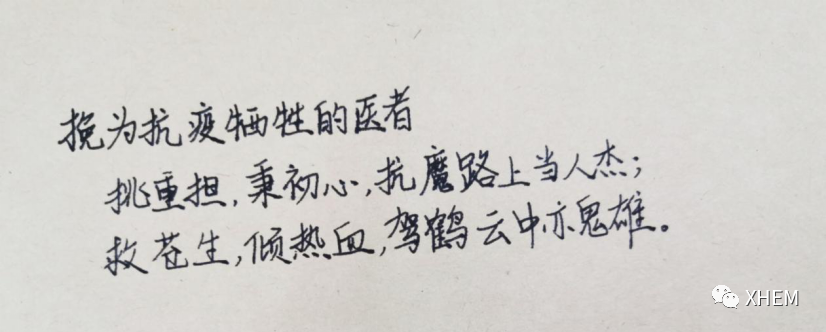 挽为抗疫牺牲的医者
挑重担,秉初心,抗魔路上当人杰;
救苍生,倾热血,驾鹤云中亦鬼雄。
XHEM